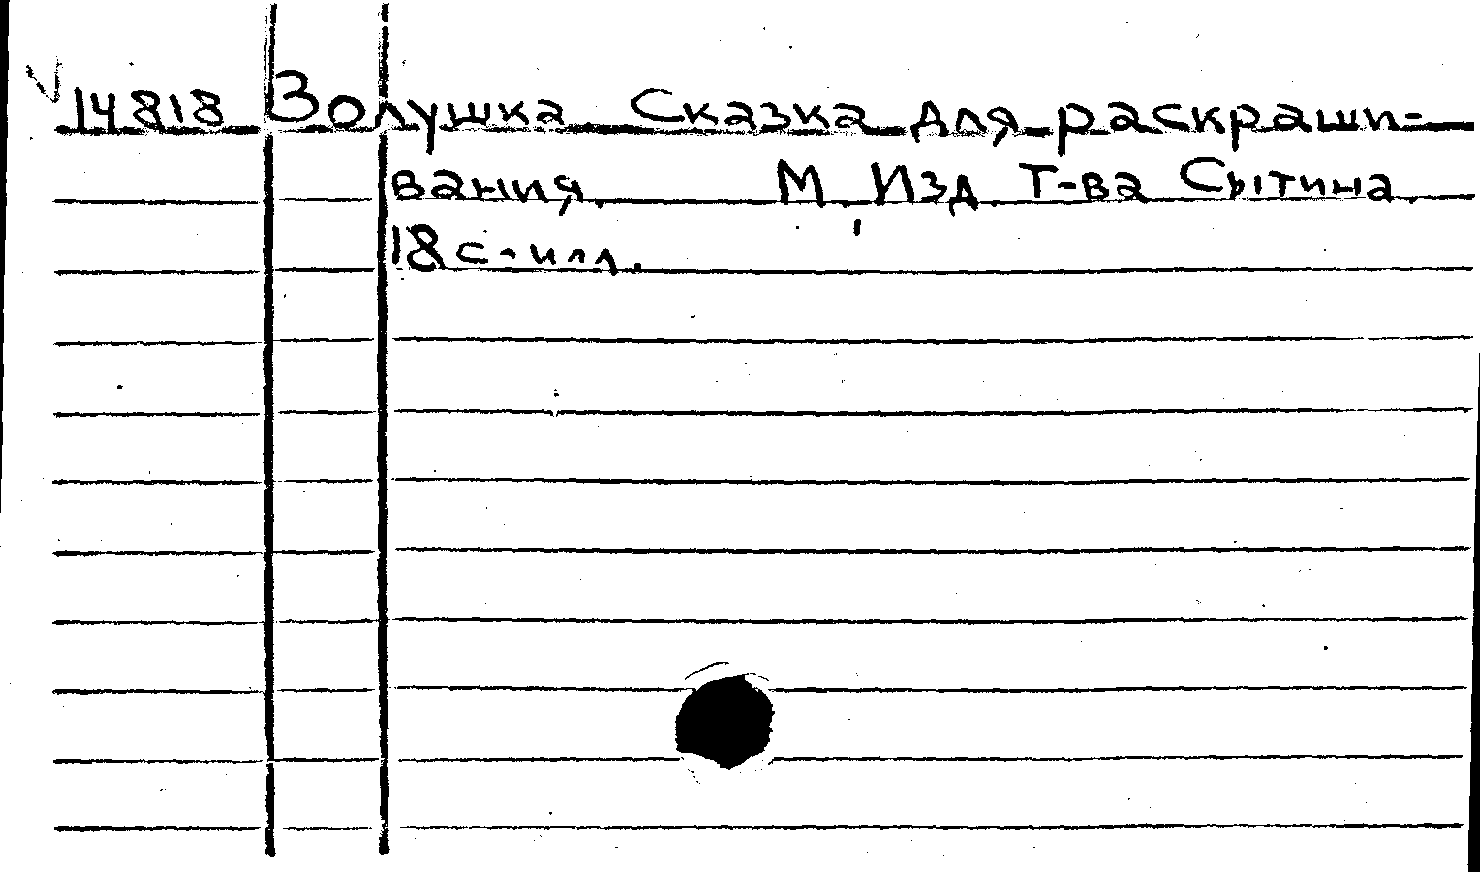 14818 Золушка. Сказка для раскраши-
вания. М., Изд. Т-ва Сытина.
18 с. илл.